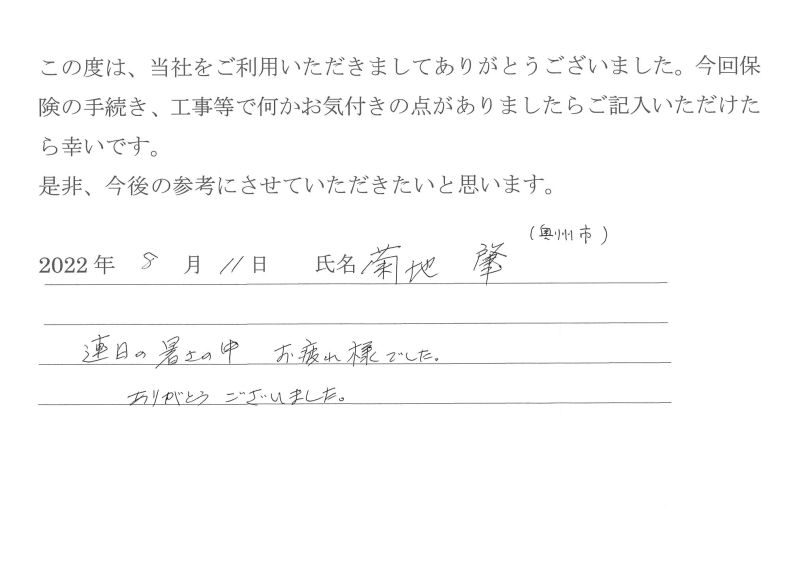 この度は、当社をご利用いただきましてありがとうございました。今回保
険の手続き、工事等で何かお気付きの点がありましたらご記入いただけた
ら幸いです。
是非、今後の参考にさせていただきたいと思います。
(奥州市)
2022年 8 月 11日 氏名 菊地 肇
連日の暑さの中 お疲れ様でした。
ありがとう ございました。